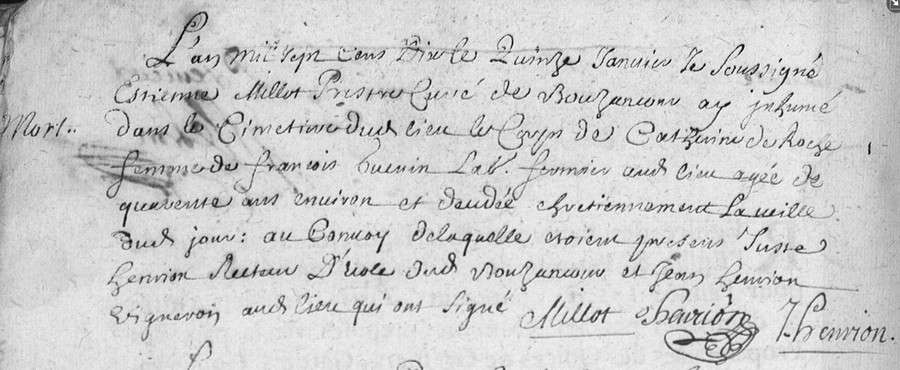 L'an mil sept cens Dix le Quinze Janvier Je Soussigné
Estienne Millot Prestre Curé de Bouzancour ay inhumé
Mort. dans le Cimetiere dud lieu le Corps de Catherine de Roche
femme de francois Guenin Lab. fermier aud lieu agée de
quarente ans environ et decedée chretiennement La veille
dud jour: au Convoy delaquelle etoient presens Juste
henrion Recteur D'Ecole dud Bouzancour et Jean henrion
vigneron aud lieu qui ont signé Millot Jhenrion J. henrion.